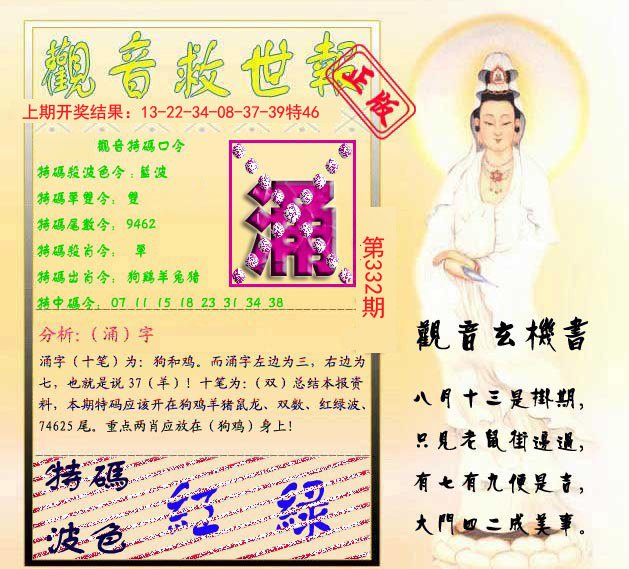 觀音救世報
正版
上期开奖结果：13-22-34-08-37-39特46
觀音特碼口令
特碼殺波色令：藍波
特碼單雙令： 雙
特碼尾數令： 9462
特碼殺肖令： 單
特碼出肖令： 狗鷄羊兔猪
特中碼令： 07 11 15 18 23 31 34 38
涌
第332期
分析：（涌）字
涌字（十笔）为：狗和鸡。而涌字左边为三，右边为
七，也就是说 37（羊）！十笔为：（双）总结本报资
料，本期特码应该开在狗鸡羊猪鼠龙、双数、红绿波、
74625 尾。重点两肖应放在（狗鸡）身上！
特碼
波色
紅 綠
觀音玄機書
八月十三是掛期，
只見老鼠街邊過，
有七有九便是吉，
大門四二成美事。